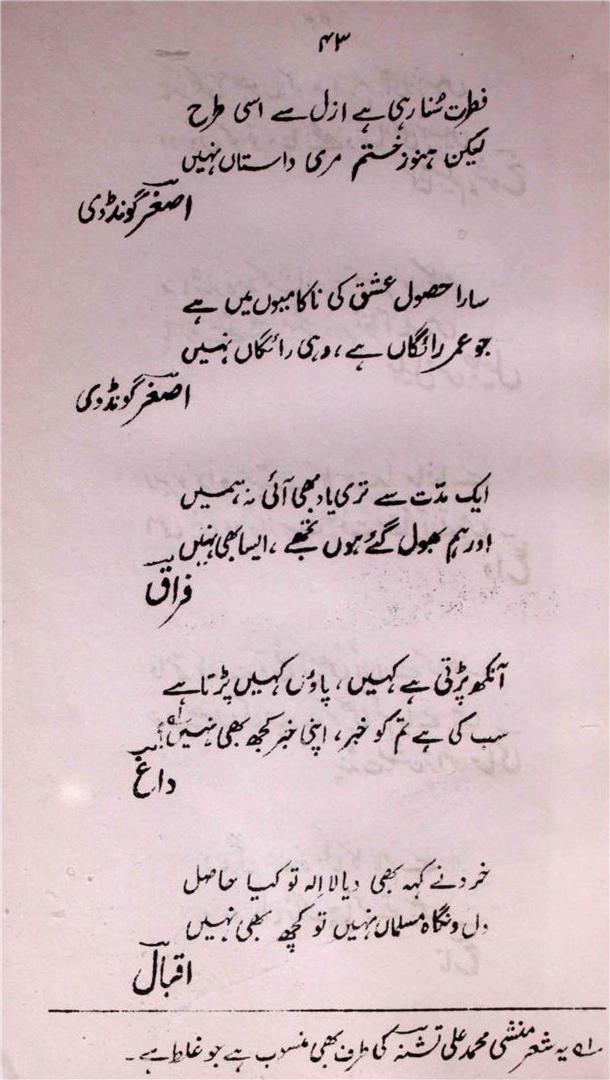 ۴۳
فطرت سُنا رہی ہے ازل سے اسی طرح
لیکن ہنوز ختم مری داستاں نہیں
اصغر گونڈوی
سارا حصول عشق کی ناکامیوں میں ہے
جو عمر رائگاں ہے، وہی رائگاں نہیں
اصغر گونڈوی
ایک مدّت سے تری یاد بھی آئی نہ ہمیں
اور ہم بھول گئے ہوں تجھے، ایسا بھی نہیں
فراق
آنکھ پڑتی ہے کہیں، پاؤں کہیں پڑتا ہے
سب کی ہے تم کو خبر، اپنی خبر کچھ بھی نہیں؟ ۱؎
داغ
خرد نے کہہ بھی دیا لا اِلہ تو کیا حاصل
دل و نگاہ مسلماں نہیں تو کچھ بھی نہیں
اقبال
۱؎ یہ شعر منشی محمد علی تشنہ کی طرف بھی منسوب ہے جو غلط ہے۔